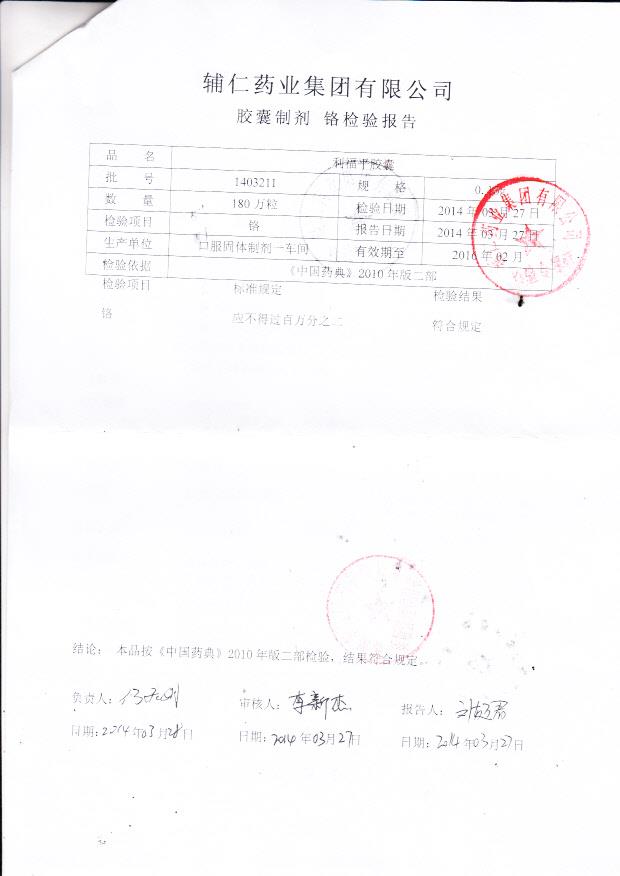 辅仁药业集团有限公司
胶囊制剂 铬检验报告
品 名 利福平胶囊
批 号 1403211 规 格 0.
数 量 180 万粒 检验日期 2014 年 03 月 27 日
检验项目 铬 报告日期 2014 年 03 月 27 日
生产单位 口服固体制剂一车间 有效期至 2016 年 02 月
检验依据 《中国药典》2010 年版二部
检验项目 标准规定 检验结果
铬 应不得过百万分之二 符合规定
业集团有限公司
结论： 本品按《中国药典》2010 年版二部检验，结果符合规定。
负责人： 审核人：李新杰 报告人：
日期：2014 年 03 月 28 日 日期：2014 年 03 月 27 日 日期：2014 年 03 月 27 日